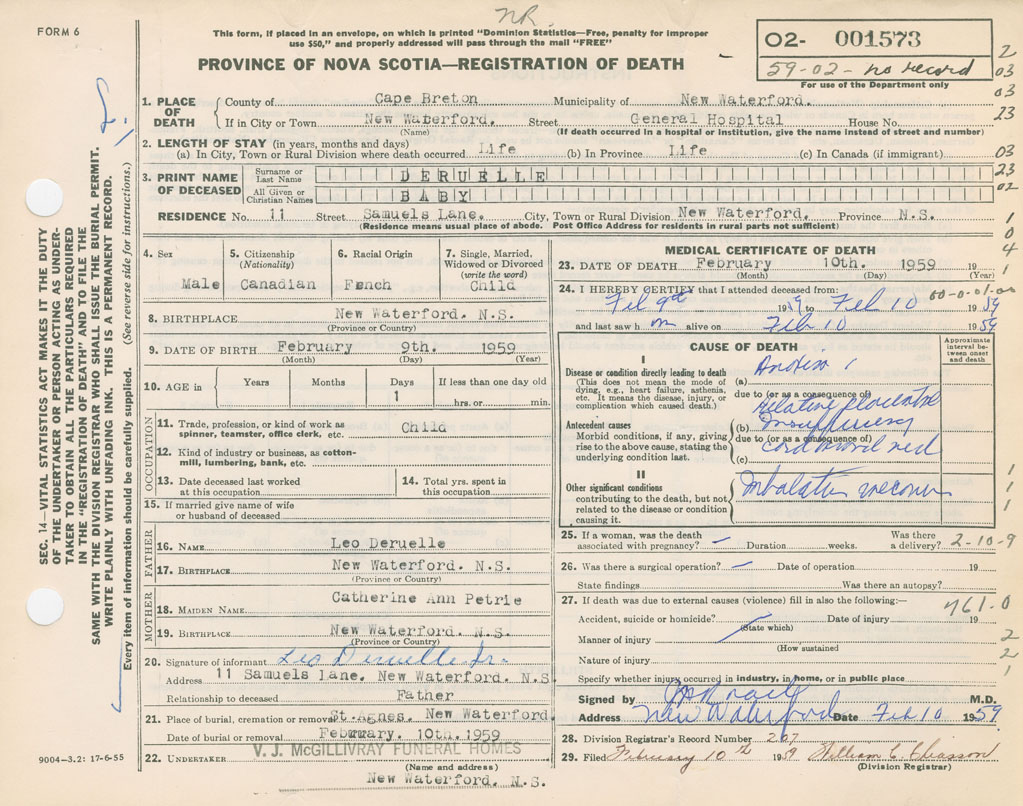 NR.
FORM 6
This form, if placed in an envelope, on which is printed "Dominion Statistics—Free, penalty for improper
use $50," and properly addressed will pass through the mail "FREE"
PROVINCE OF NOVA SCOTIA—REGISTRATION OF DEATH
02- 001573
59-02- no record
For use of the Department only
2
03
03
23
03
23
02
1
0
4
1. PLACE OF DEATH
County of Cape Breton Municipality of New Waterford.
If in City or Town New Waterford. Street General Hospital House No.
(Name) (If death occurred in a hospital or institution, give the name instead of street and number)
2. LENGTH OF STAY (in years, months and days)
(a) In City, Town or Rural Division where death occurred Life (b) In Province Life (c) In Canada (if immigrant)
3. PRINT NAME OF DECEASED
Surname or Last Name DERUELLE
All Given or Christian Names BABY
RESIDENCE No. 11 Street Samuels Lane. City, Town or Rural Division New Waterford. Province N.S.
(Residence means usual place of abode. Post Office Address for residents in rural parts not sufficient)
4. Sex Male
5. Citizenship (Nationality) Canadian
6. Racial Origin Fench
7. Single, Married, Widowed or Divorced (write the word) Child
8. BIRTHPLACE New Waterford. N.S.
(Province or Country)
9. DATE OF BIRTH February 9th. 1959
(Month) (Day) (Year)
10. AGE in Years Months Days If less than one day old
1 hrs. or min.
OCCUPATION
11. Trade, profession, or kind of work as spinner, teamster, office clerk, etc. Child
12. Kind of industry or business, as cotton-mill, lumbering, bank, etc.
13. Date deceased last worked at this occupation
14. Total yrs. spent in this occupation
15. If married give name of wife or husband of deceased
FATHER
16. NAME Leo Deruelle
17. BIRTHPLACE New Waterford. N.S.
(Province or Country)
MOTHER
18. MAIDEN NAME Catherine Ann Petrie
19. BIRTHPLACE New Waterford. N.S.
(Province or Country)
20. Signature of informant Leo Deruelle Jr.
Address 11 Samuels Lane. New Waterford. N.S
Relationship to deceased Father
21. Place of burial, cremation or removal St. Agnes. New Waterford.
Date of burial or removal February. 10th. 1959
22. UNDERTAKER V. J. McGILLIVRAY FUNERAL HOMES
(Name and address)
New Waterford. N.S.
9004-3.2: 17-6-55
MEDICAL CERTIFICATE OF DEATH
23. DATE OF DEATH February 10th. 1959 19
(Month) (Day) (Year)
24. I HEREBY CERTIFY that I attended deceased from:
00-0-01-00
Feb 9th 1959 to Feb 10 1959
and last saw h m alive on Feb 10 1959
CAUSE OF DEATH
Approximate interval between onset and death
I
Disease or condition directly leading to death
(This does not mean the mode of dying, e.g., heart failure, asthenia, etc. It means the disease, injury, or complication which caused death.)
(a) Anoxia
due to (or as a consequence of)
Relative placental
Antecedent causes
Morbid conditions, if any, giving rise to the above cause, stating the underlying condition last.
(b) insufficiency
due to (or as a consequence of)
(c) cord
II
Other significant conditions
contributing to the death, but not related to the disease or condition causing it.
Inhalation meconium
25. If a woman, was the death associated with pregnancy? — Duration weeks. Was there a delivery? 2-10-9
26. Was there a surgical operation? — Date of operation 19
State findings Was there an autopsy?
27. If death was due to external causes (violence) fill in also the following:—
761.0
Accident, suicide or homicide? Date of injury 19
(State which)
Manner of injury
(How sustained
Nature of injury
Specify whether injury occurred in industry, in home, or in public place
1
1
1
2
2
1
Signed by M.D.
Address New Waterford Date Feb 10 1959
28. Division Registrar's Record Number 207
29. Filed February 10th 1959 William C Chiasson
(Division Registrar)
SEC. 14—VITAL STATISTICS ACT MAKES IT THE DUTY
OF THE UNDERTAKER OR PERSON ACTING AS UNDER-
TAKER TO OBTAIN ALL THE PARTICULARS REQUIRED
IN THE "REGISTRATION OF DEATH" AND TO FILE THE
SAME WITH THE DIVISION REGISTRAR WHO SHALL ISSUE THE BURIAL PERMIT.
WRITE PLAINLY WITH UNFADING INK. THIS IS A PERMANENT RECORD.
Every item of information should be carefully supplied. (See reverse side for instructions.)